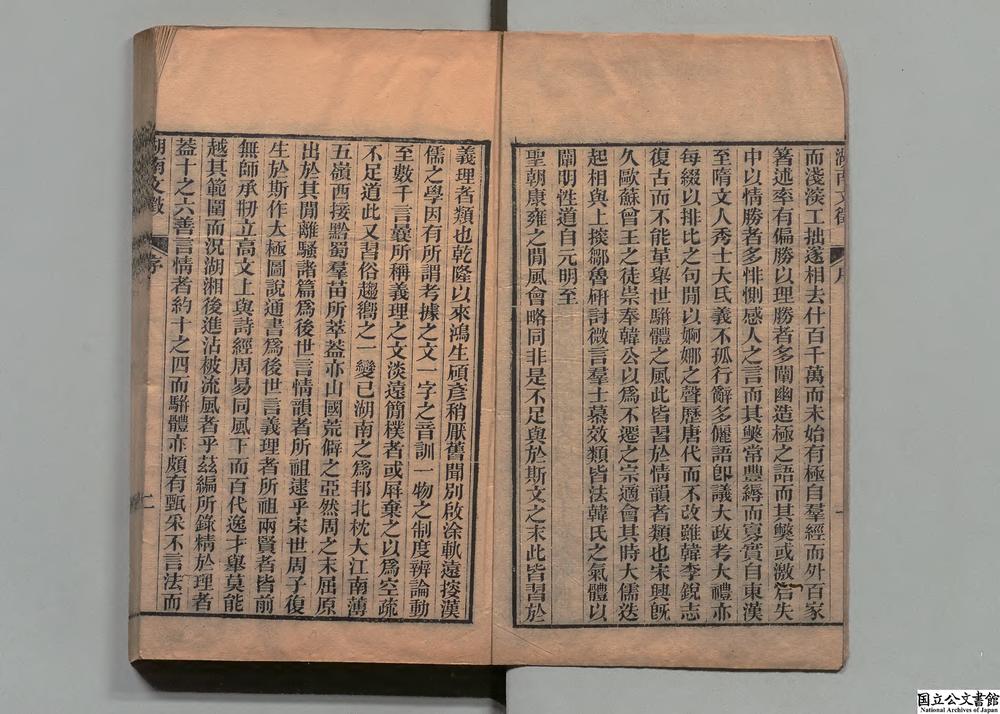 而淺淡工拙遂相去什百千萬而未始有極自羣經而外百家
箸述率有偏勝以理勝者多闡幽造極之語而其獘或激宕失
中以情勝者多悱惻感人之言而其獘常豐縟而寡實自東漢
至隋文人秀士大氐義不孤行辭多儷語卽議大政考大禮亦
每綴以排比之句閒以婀娜之聲歷唐代而不改雖韓李銳志
復古而不能革舉世駢體之風此皆習於情韻者類也宋興旣
久歐蘇曾王之徒崇奉韓公以爲不遷之宗適會其時大儒迭
起相與上探鄒魯硏討微言羣士慕效類皆法韓氏之氣體以
闡明性道自元明至
聖朝康雍之閒風會略同非是不足與於斯文之末此皆習於
義理者類也乾隆以來鴻生碩彥稍厭舊聞別啟涂軌遠搜漢
儒之學因有所謂考據之文一字之音訓一物之制度辨論動
至數千言曩所稱義理之文淡遠簡樸者或屛棄之以爲空疏
不足道此又習俗趨嚮之一變已湖南之爲邦北枕大江南薄
五嶺西接黔蜀羣苗所萃蓋亦山國荒僻之亞然周之末屈原
出於其閒離騷諸篇爲後世言情韻者所祖逮乎宋世周子復
生於斯作太極圖說通書爲後世言義理者所祖兩賢者皆前
無師承刱立高文上與詩經周易同風下而百代逸才舉莫能
越其範圍而況湖湘後進沾被流風者乎茲編所錄精於理者
蓋十之六善言情者約十之四而駢體亦頗有甄采不言法而
湖南文徵
序
二
国立公文書館
National Archives of Japan